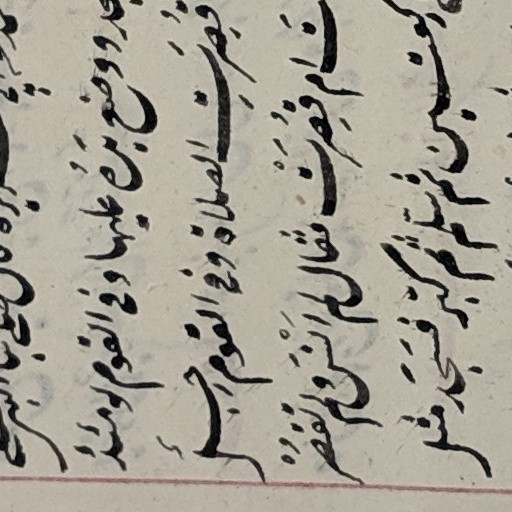 صلى بنا النبي صلى
ووضع يَدَهُ عليها وفى القوم يومئذ
قُصِرَتِ الصلاة وفى القوم رجل
ام قُصِرَتْ فقال لم اَنْسَ ولم تُقصَرْ
ركعتين ثم سلّم ثم كبّر فَسَجَدَ مثل